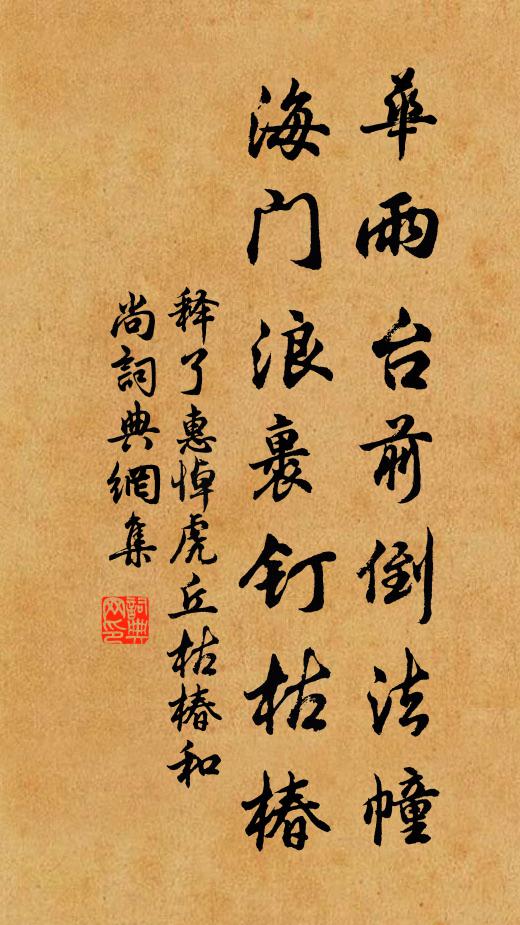 華雨台前倒法幢
海门浪裏钉枯椿
释了惠悼虎丘枯椿和
尚詞典網集
詞典网印